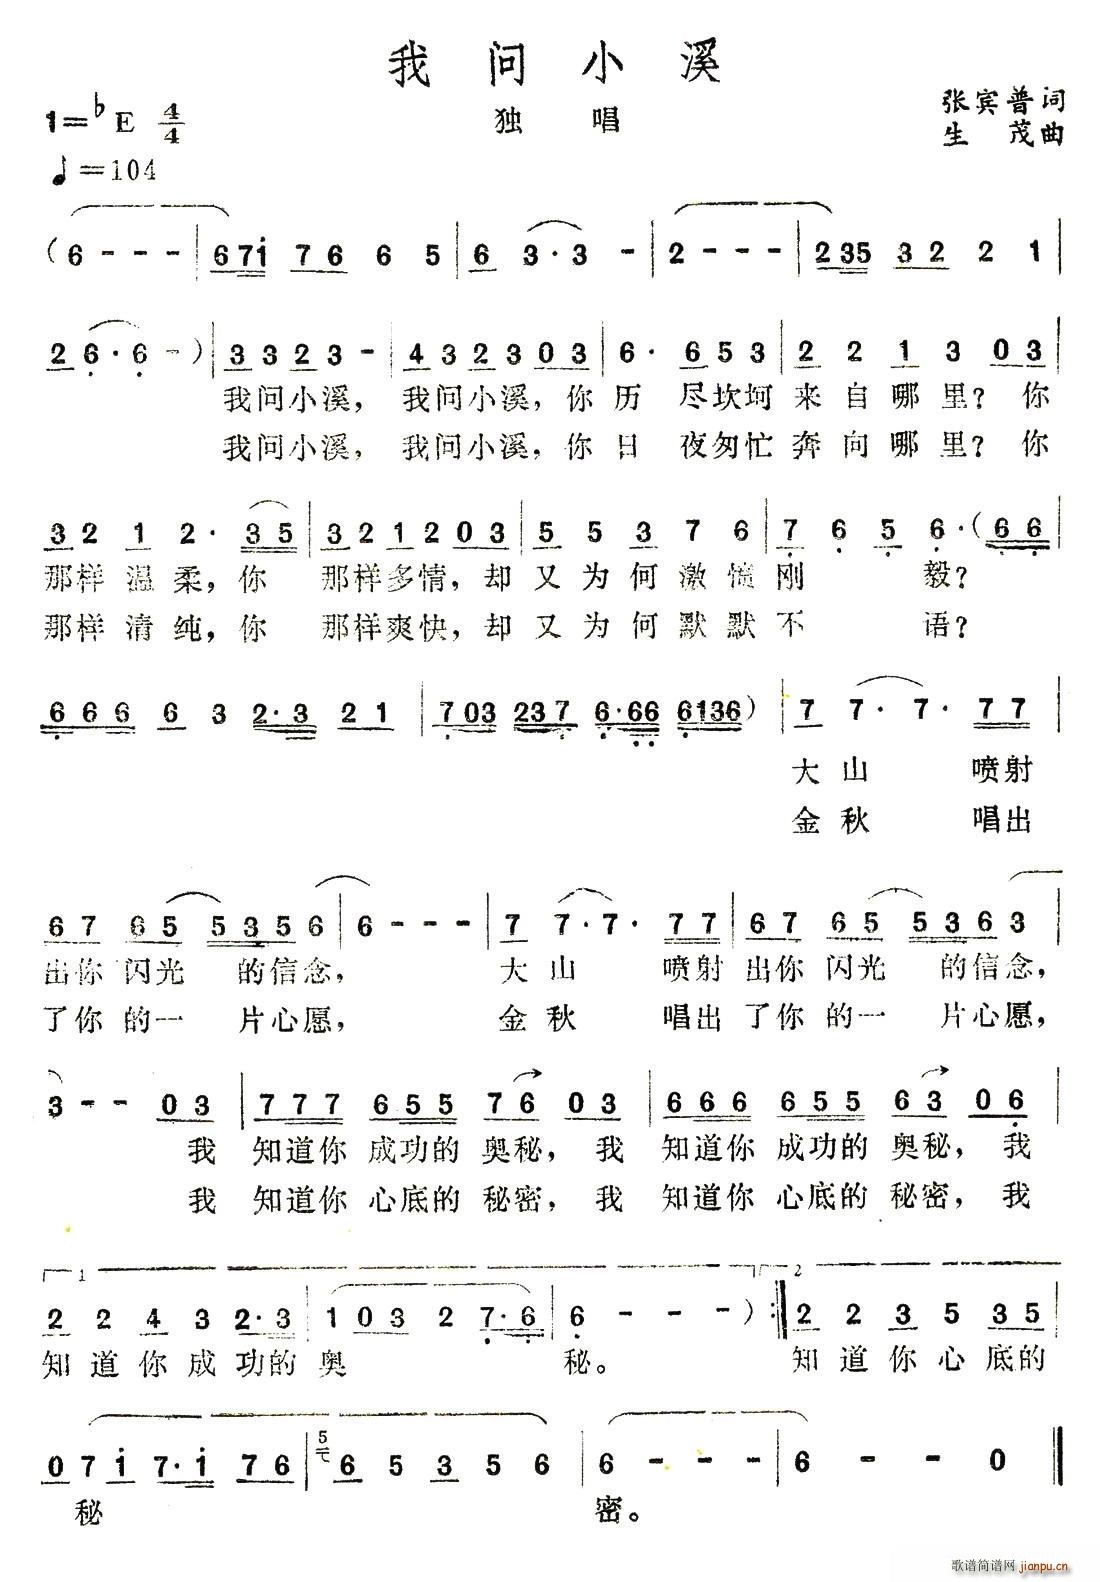 我问小溪
独唱
1=♭E 4/4
张宾普词
生茂曲
♩=104
(6 - - - | 671 76 6 5 | 6 3·3 - | 2 - - - | 235 32 2 1 |
2 6·6 - ) | 3323 - | 4323 03 | 6· 653 | 2 2 1 3 03 |
我问小溪， 我问小溪，你历 尽坎坷来自哪里？你
我问小溪， 我问小溪，你日 夜匆忙奔向哪里？你
32 1 2· 35 | 3212 03 | 5 5 3 7 6 | 7 6 5 6·(66 |
那样温柔，你 那样多情，却又为何激愤刚 毅？
那样清纯，你 那样爽快，却又为何默默不 语？
666 6 3 2·3 21 | 703 237 6·66 6136) | 7 7·7· 77 |
大山 喷射
金秋 唱出
67 65 5356 | 6 - - - | 7 7·7· 77 | 67 65 5363 |
出你闪光 的信念， 大山 喷射出你闪光 的信念，
了你的一 片心愿， 金秋 唱出了你的一 片心愿，
3 - - 03 | 777 655 76 03 | 666 655 63 06 |
我 知道你成功的奥秘，我 知道你成功的奥秘，我
我 知道你心底的秘密，我 知道你心底的秘密，我
1 2
2 2 4 3 2·3 | 1 03 2 7·6 | 6 - - - ) :| 2 2 3 5 35 |
知道你成功的奥 秘。 知道你心底的
0 7 1 7·1 76 | 5 6 5 3 5 6 | 6 - - - | 6 - - 0 ‖
秘 密。
歌谱简谱网 jianpu.cn